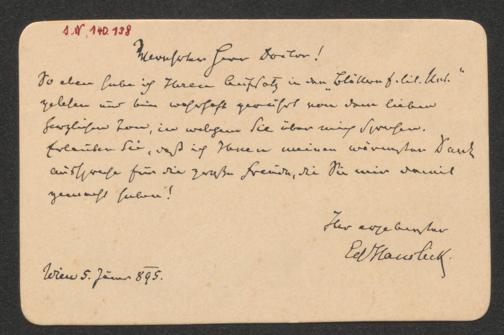 I.N. 140.138
Verehrter Herr Doctor!
So eben habe ich Ihren Aufsatz in den „Blättern f. lit. Unt."
gelesen und bin wahrhaft gerührt von dem lieben
herzlichen Ton, in welchem Sie über mich sprechen.
Erlauben Sie, daß ich Ihnen meinen wärmsten Dank
ausspreche für die große Freude, die Sie mir damit
gemacht haben!
Ihr ergebenster
Ed Hanslick.
Wien 5. Jänner 895.